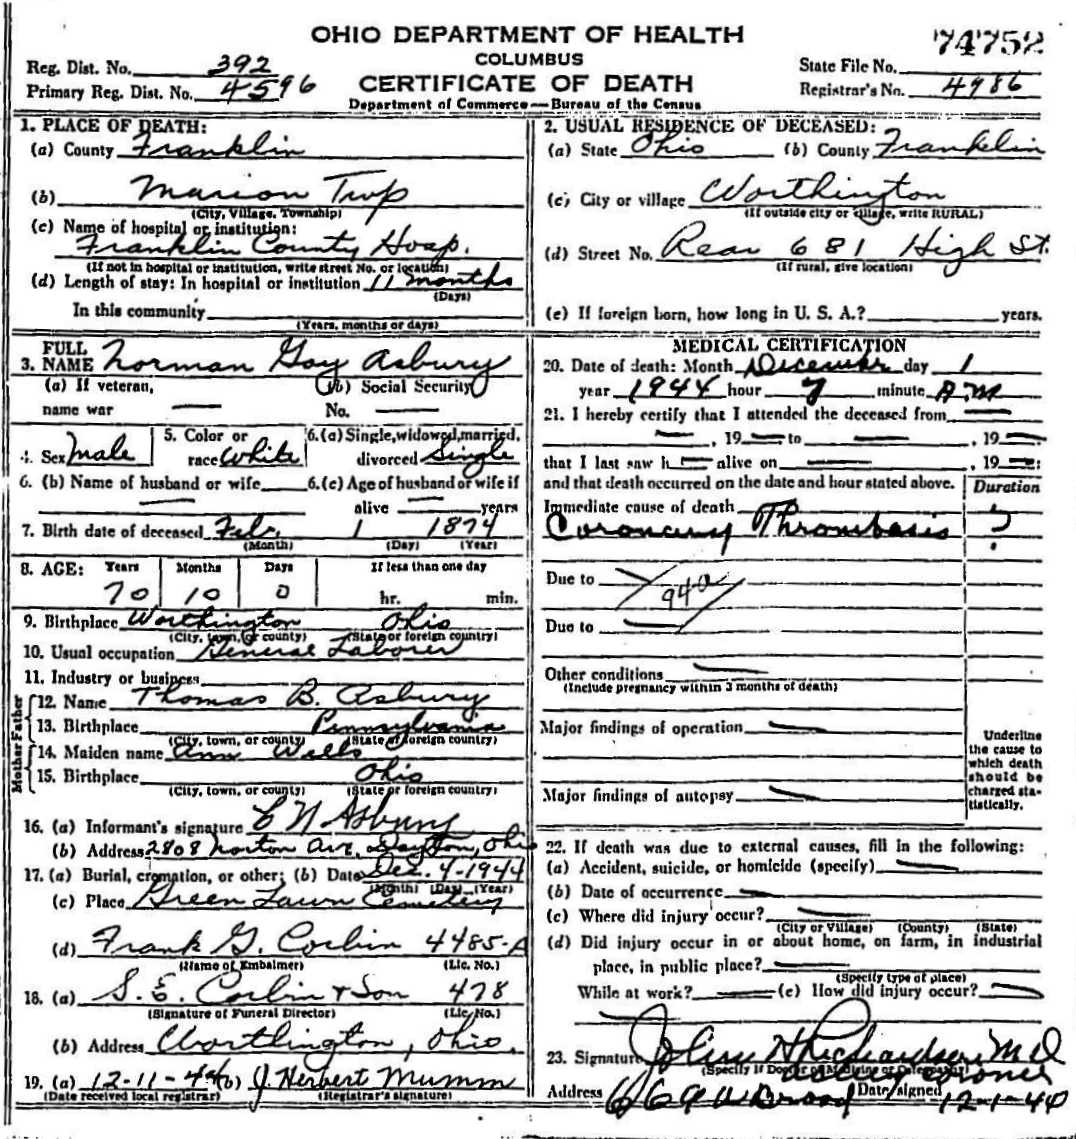 OHIO DEPARTMENT OF HEALTH
74752
COLUMBUS
Reg. Dist. No. 392
State File No.
CERTIFICATE OF DEATH
Primary Reg. Dist. No. 4596
Registrar's No. 4986
Department of Commerce—Bureau of the Census
1. PLACE OF DEATH:
(a) County Franklin
(b) Marion Twp
(City, Village, Township)
(c) Name of hospital or institution:
Franklin County Hosp.
(If not in hospital or institution, write street No. or location)
(d) Length of stay: In hospital or institution 11 months
(Days)
In this community
(Years, months or days)
2. USUAL RESIDENCE OF DECEASED:
(a) State Ohio (b) County Franklin
(c) City or village Worthington
(If outside city or village, write RURAL)
(d) Street No. Rear 681 High St.
(If rural, give location)
(e) If foreign born, how long in U. S. A.? years.
3. FULL NAME Norman Gay Asbury
(a) If veteran, name war — (b) Social Security No. —
4. Sex Male 5. Color or race White 6. (a) Single, widowed, married, divorced Single
6. (b) Name of husband or wife — 6. (c) Age of husband or wife if alive — years
7. Birth date of deceased Feb. 1 1874
(Month) (Day) (Year)
8. AGE: Years Months Days If less than one day
70 10 0 hr. min.
9. Birthplace Worthington Ohio
(City, town, or county) (State or foreign country)
10. Usual occupation General Laborer
11. Industry or business
Father
12. Name Thomas B. Asbury
13. Birthplace Pennsylvania
(City, town, or county) (State of foreign country)
Mother
14. Maiden name Ann Wells
15. Birthplace Ohio
(City, town, or county) (State or foreign country)
16. (a) Informant's signature C N Asbury
(b) Address 2808 Norton Ave, Dayton, Ohio
17. (a) Burial, cremation, or other: (b) Date Dec. 4-1944
(Month) (Day) (Year)
(c) Place Green Lawn Cemetery
(d) Frank G. Corbin 4485-A
(Name of Embalmer) (Lic. No.)
18. (a) S. E. Corbin & Son 478
(Signature of Funeral Director) (Lic. No.)
(b) Address Worthington, Ohio.
19. (a) 12-11-44 (b) J. Herbert Mumm
(Date received local registrar) (Registrar's signature)
MEDICAL CERTIFICATION
20. Date of death: Month December day 1
year 1944 hour 7 minute A.M
21. I hereby certify that I attended the deceased from —
—, 19— to —, 19—
that I last saw h— alive on —, 19—;
and that death occurred on the date and hour stated above.
Duration
Immediate cause of death
Coronary Thrombosis ?
Due to —
940
Due to —
Other conditions —
(Include pregnancy within 3 months of death)
Major findings of operation —
Major findings of autopsy —
Underline the cause to which death should be charged statistically.
22. If death was due to external causes, fill in the following:
(a) Accident, suicide, or homicide (specify) —
(b) Date of occurrence —
(c) Where did injury occur? —
(City or Village) (County) (State)
(d) Did injury occur in or about home, on farm, in industrial
place, in public place? —
(Specify type of place)
While at work? — (e) How did injury occur? —
23. Signature John H Richardson M D
(Specify if Doctor of Medicine or Osteopathy)
acting coroner
Address 669 W Broad Date signed 12-1-44